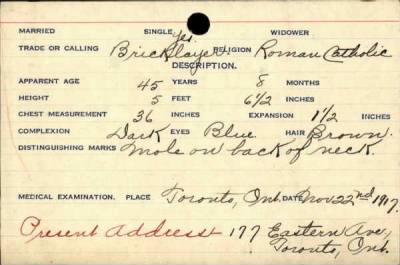 MARRIED SINGLE yes. WIDOWER
TRADE OR CALLING Bricklayer. RELIGION Roman Catholic
DESCRIPTION.
APPARENT AGE 45 YEARS 8 MONTHS
HEIGHT 5 FEET 6 1/2 INCHES
CHEST MEASUREMENT 36 INCHES EXPANSION 1 1/2 INCHES
COMPLEXION Dark EYES Blue HAIR Brown.
DISTINGUISHING MARKS Mole on back of neck.
MEDICAL EXAMINATION. PLACE Toronto, Ont. DATE Nov 22nd 1917.
Present Address 177 Eastern Ave,
Toronto, Ont.